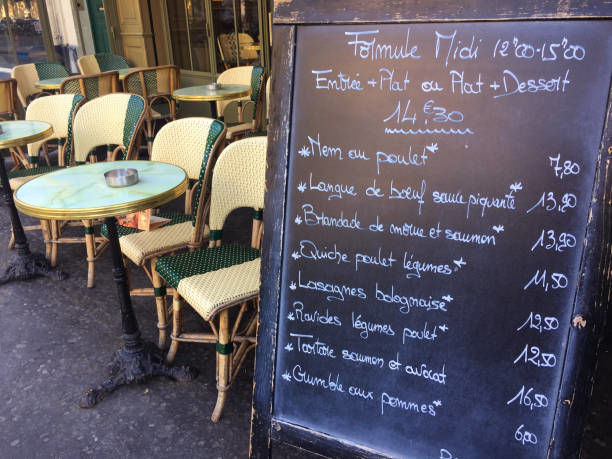 Formule Midi 12"00-15"00
Entrée + Plat ou Plat + Dessert
14€30
*Nem au poulet* 7,80
*Langue de bœuf sauce piquante* 13,90
*Brandade de morue et saumon* 13,90
*Quiche poulet légumes* 11,50
*Lassagnes bolognaise* 12,50
*Ravioles légumes poulet* 12,50
*Tartare saumon et avocat 16,50
*Crumble aux pommes* 6,00